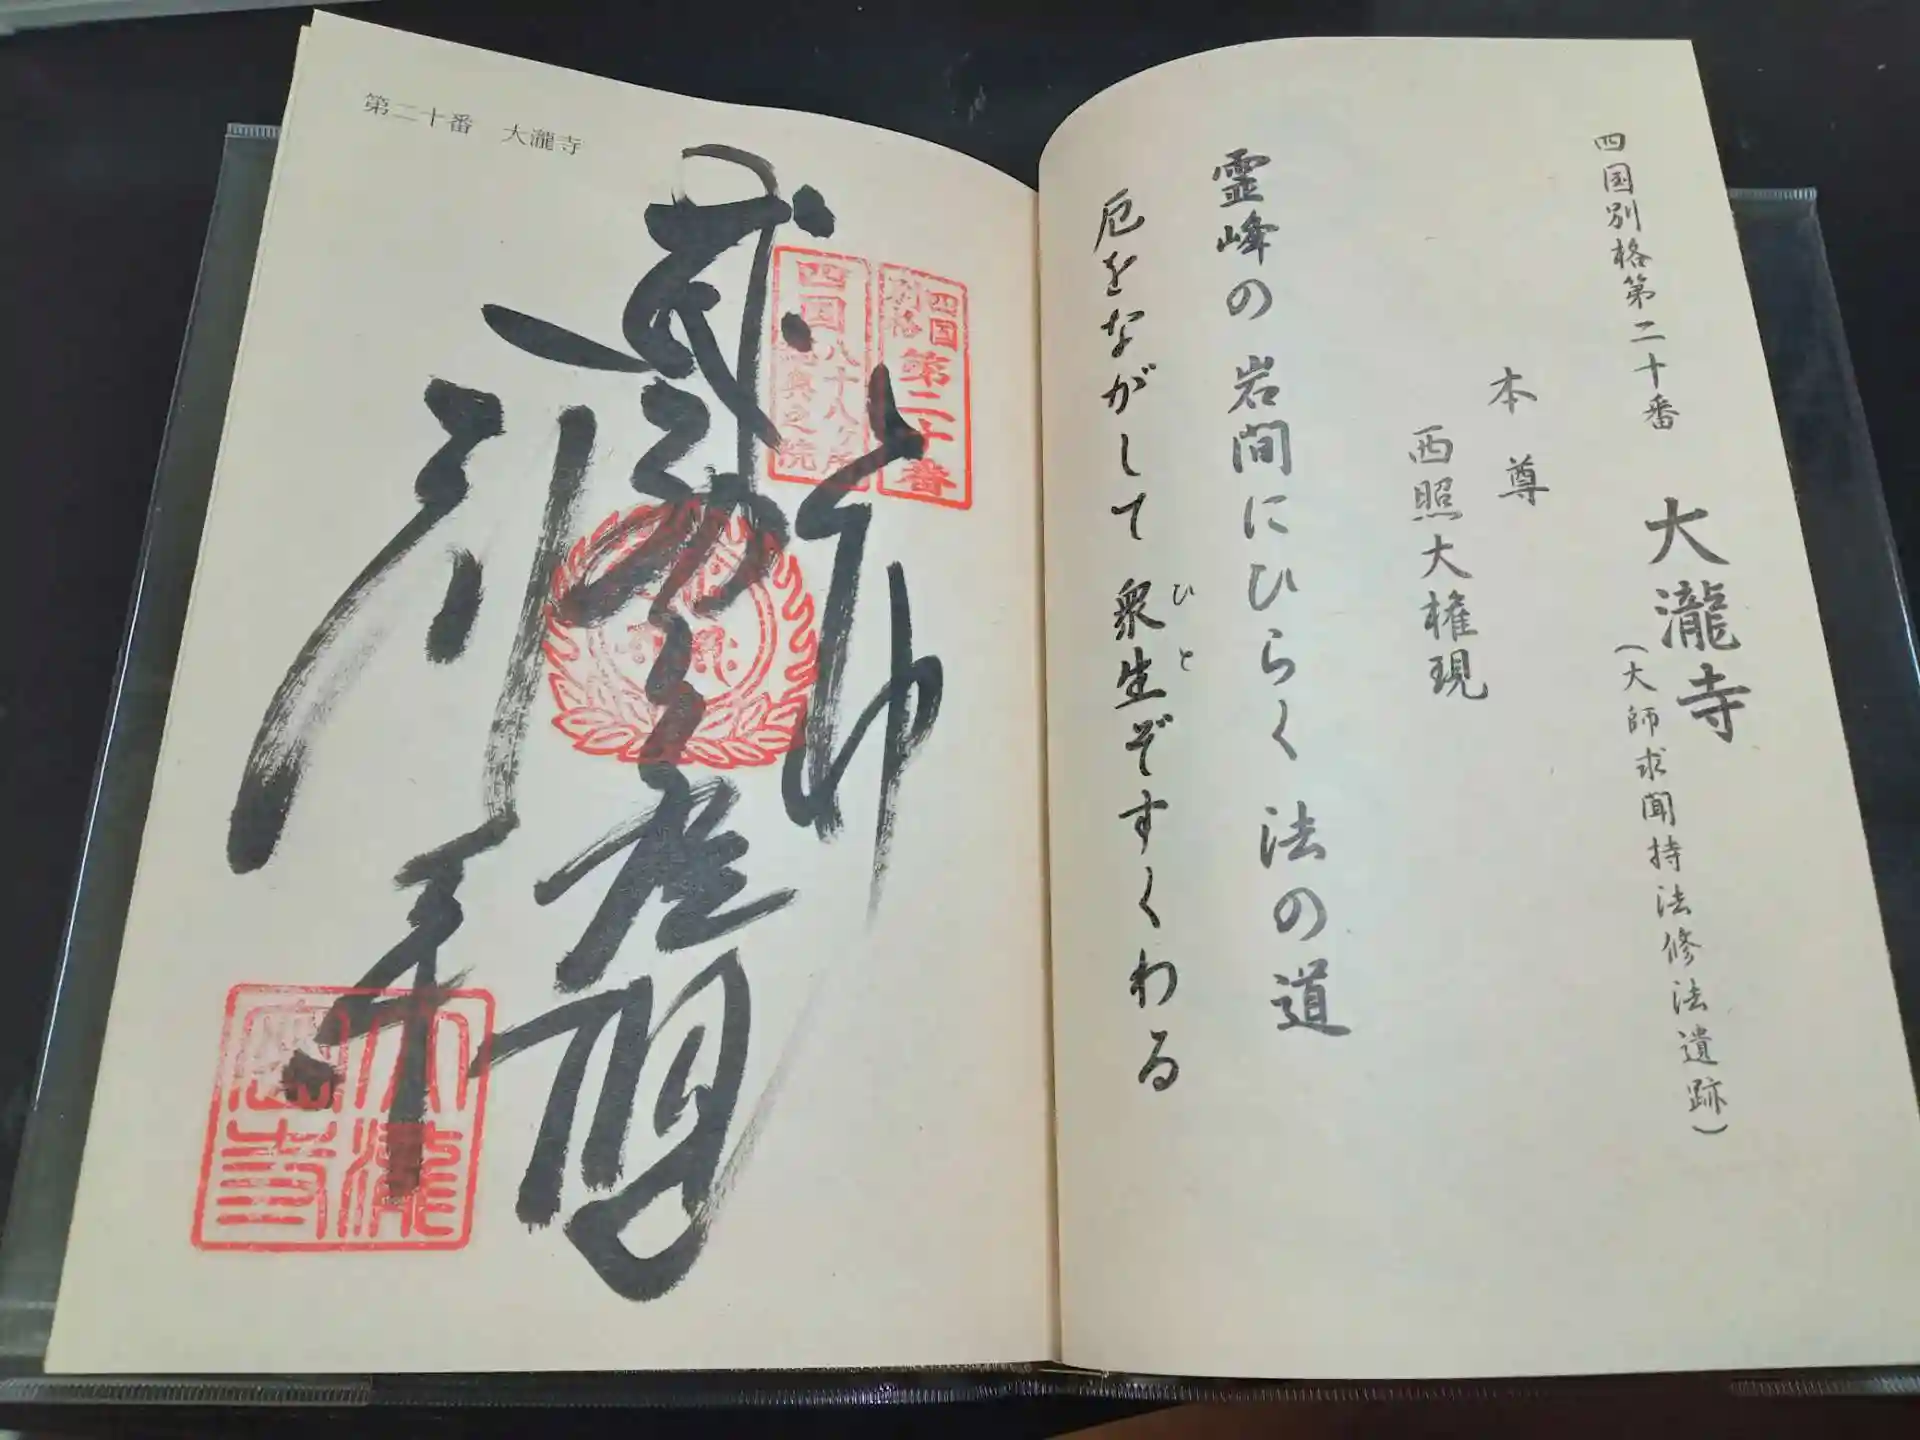 四国別格第二十番 大瀧寺
(大師求聞持法修法遺跡)
本尊
西照大権現
霊峰の 岩間にひらく 法の道
厄をながして 衆生ぞすくわる
ひと
第二十番 大瀧寺
四国別格 第二十番
四国八十八ヶ所
総奥之院
奉
大瀧寺